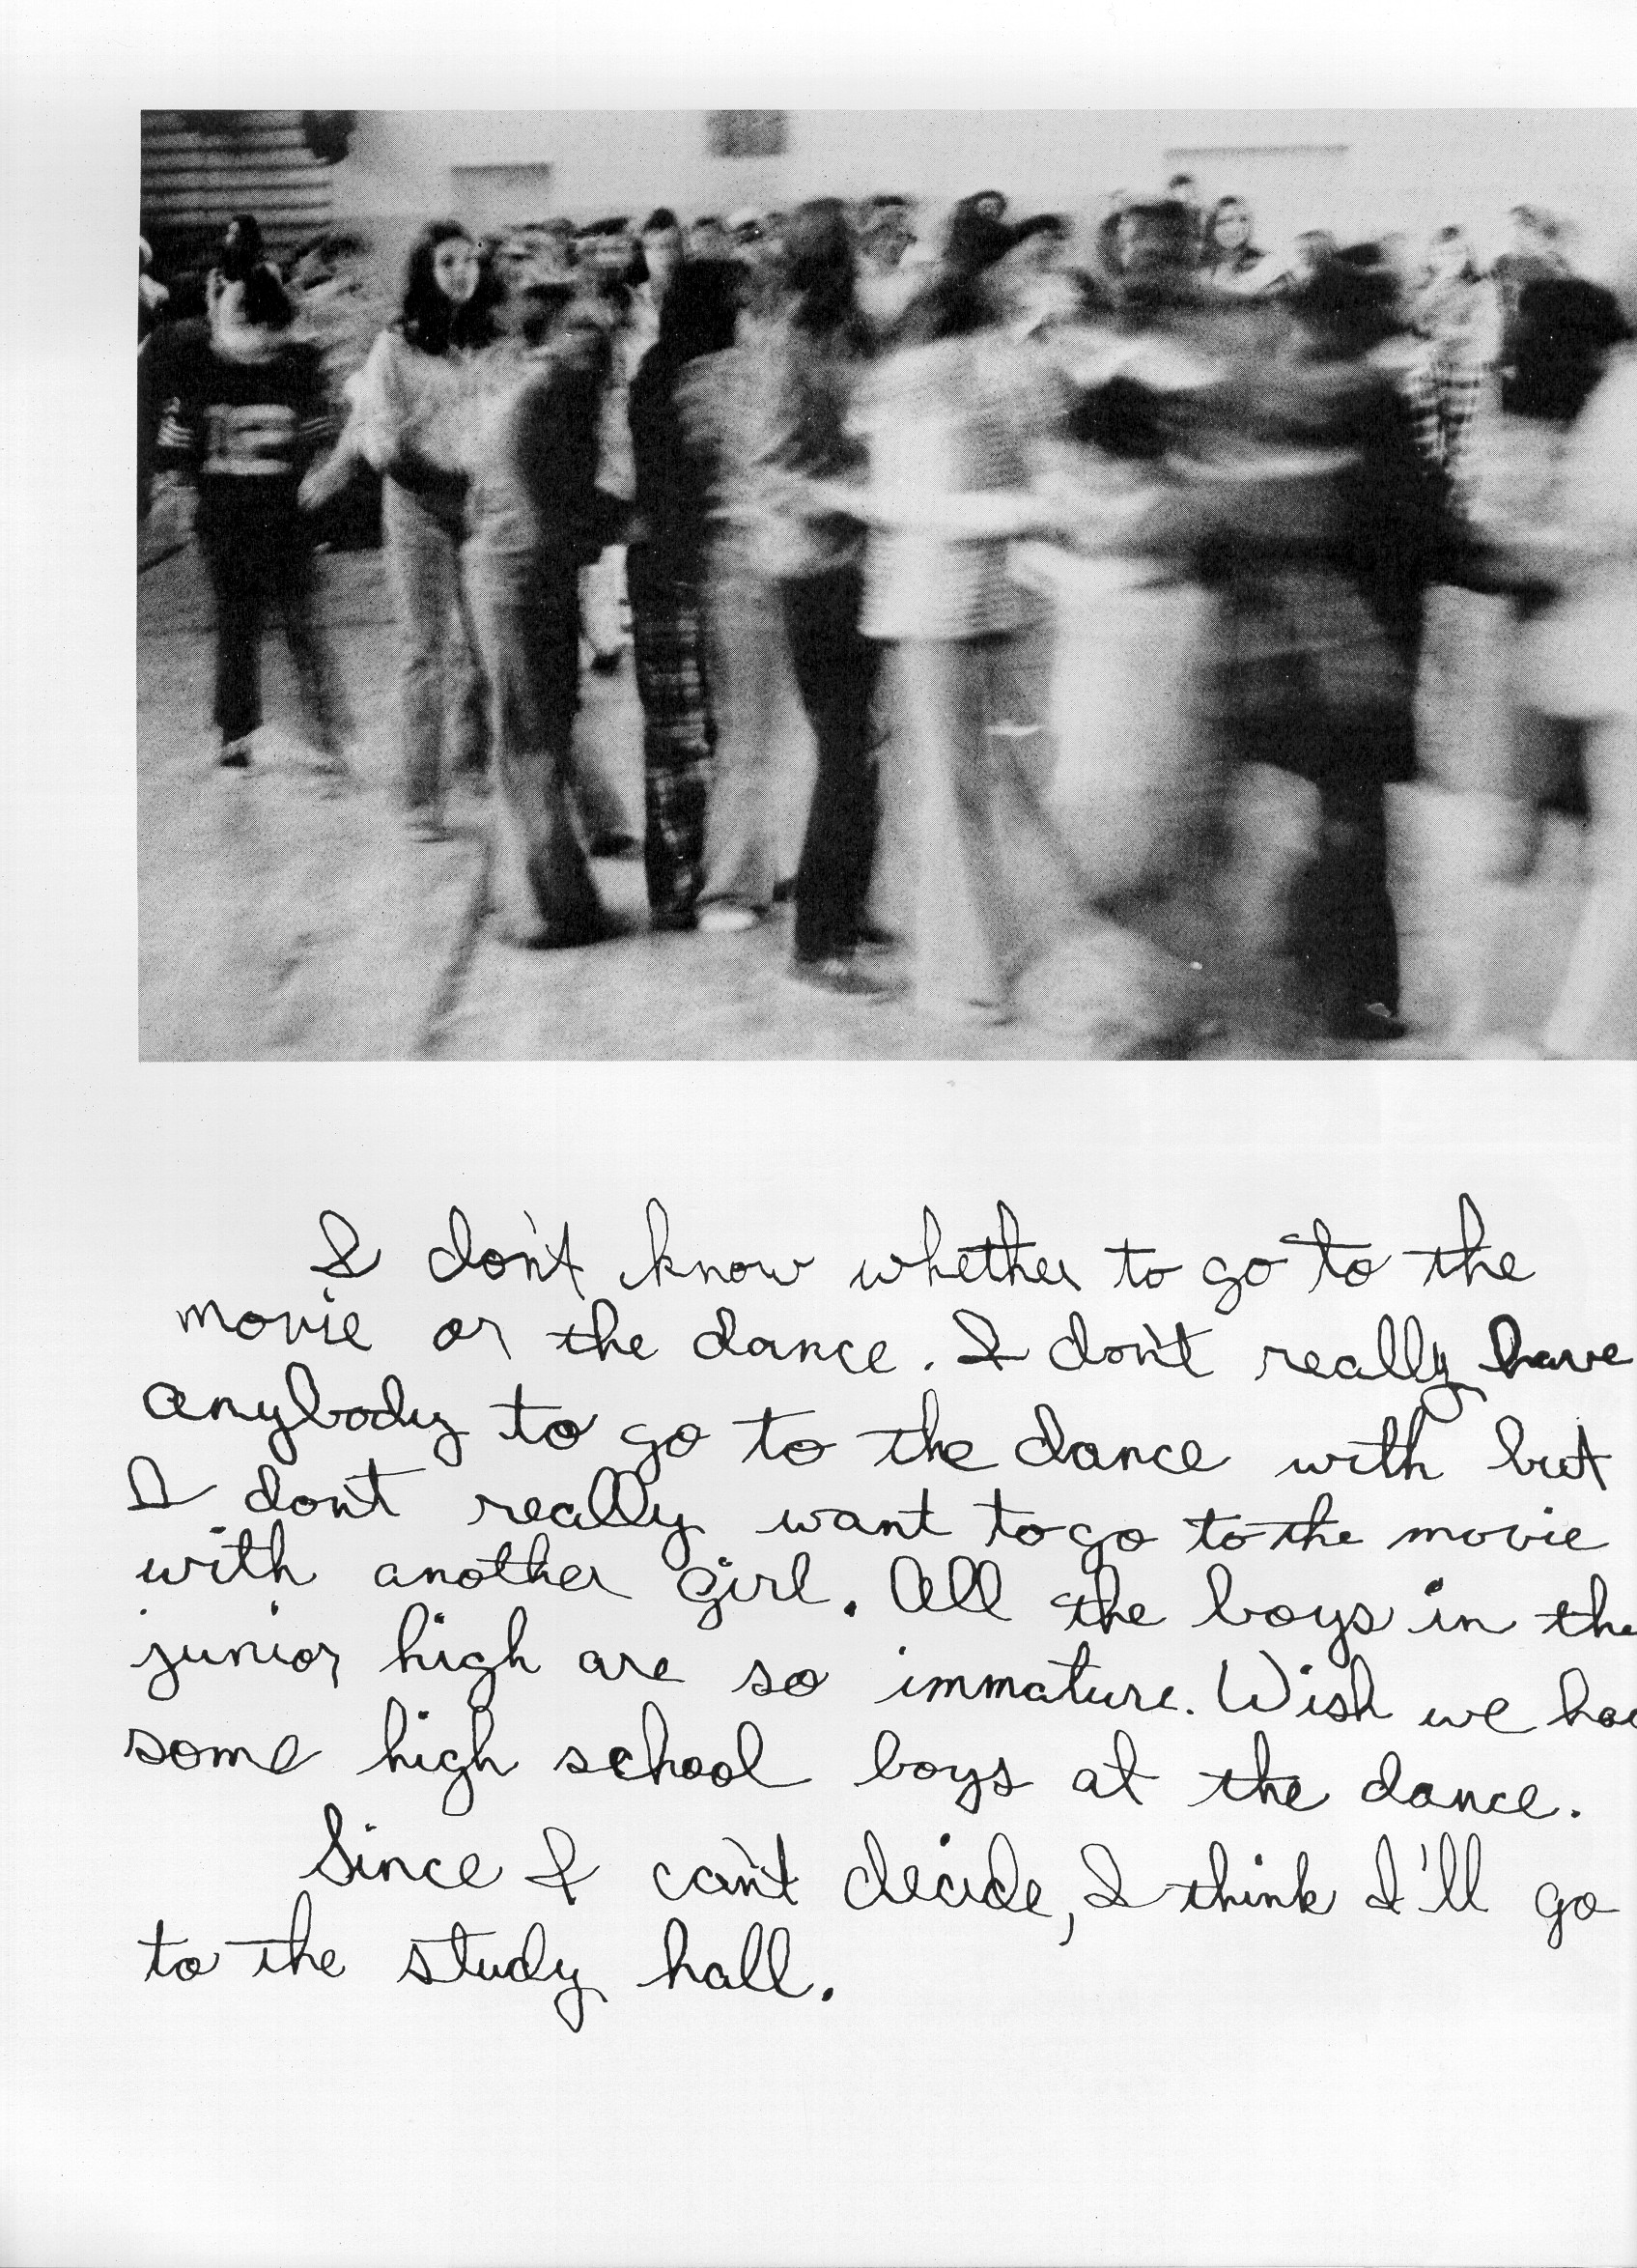 I don't know whether to go to the
movie or the dance. I don't really have
anybody to go to the dance with but
I don't really want to go to the movie
with another girl. All the boys in the
junior high are so immature. Wish we had
some high school boys at the dance.
Since I can't decide, I think I'll go
to the study hall.